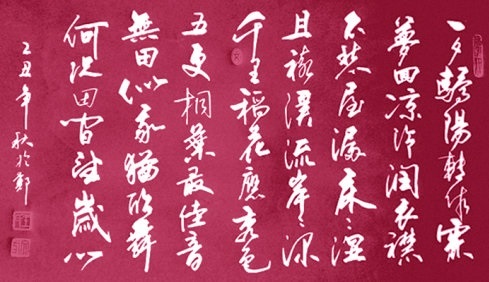 一夕驕陽轉作霖
夢回凉冷潤衣襟
不愁屋漏床々濕
且禧溪流岸々深
千里稻花應秀色
五更桐葉最佳音
無田似我猶欣舞
何况田间望歲心
乙丑年秋於鄭